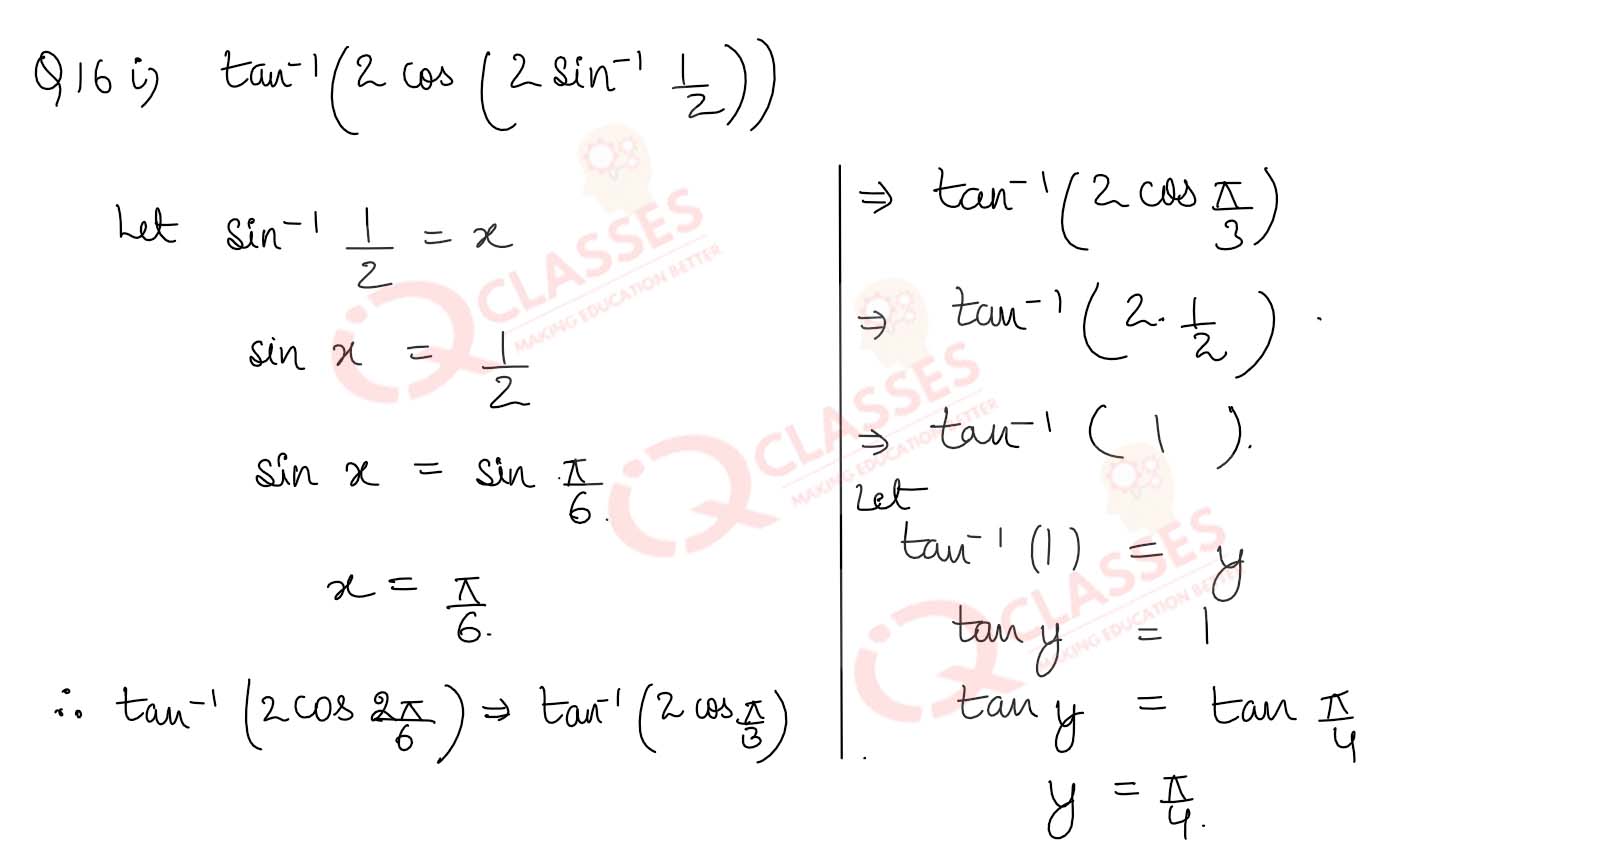 Q16 i) tan⁻¹(2 cos (2 sin⁻¹ 1/2))
Let sin⁻¹ 1/2 = x
sin x = 1/2
sin x = sin π/6.
x = π/6.
∴ tan⁻¹(2 cos 2π/6) ⇒ tan⁻¹(2 cos π/3)
⇒ tan⁻¹(2 cos π/3)
⇒ tan⁻¹(2 · 1/2) .
⇒ tan⁻¹( 1 ).
Let
tan⁻¹(1) = y
tan y = 1
tan y = tan π/4
y = π/4.
IQ CLASSES
MAKING EDUCATION BETTER
IQ CLASSES
MAKING EDUCATION BETTER
IQ CLASSES
MAKING EDUCATION BETTER